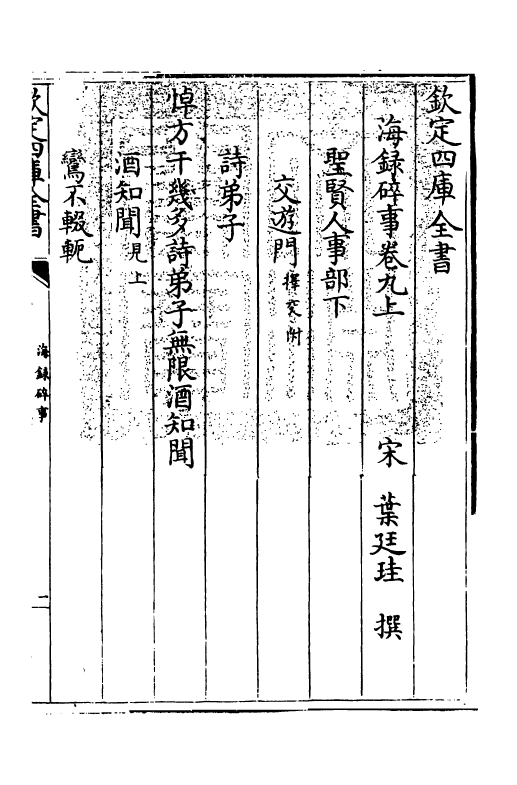 欽定四庫全書
海録碎事卷九上　宋　葉廷珪　撰
聖賢人事部下
交遊門擇交附
詩弟子
悼方干幾多詩弟子無限酒知聞
酒知聞見上
鸞不輟軛
欽定四庫全書
海録碎事
二